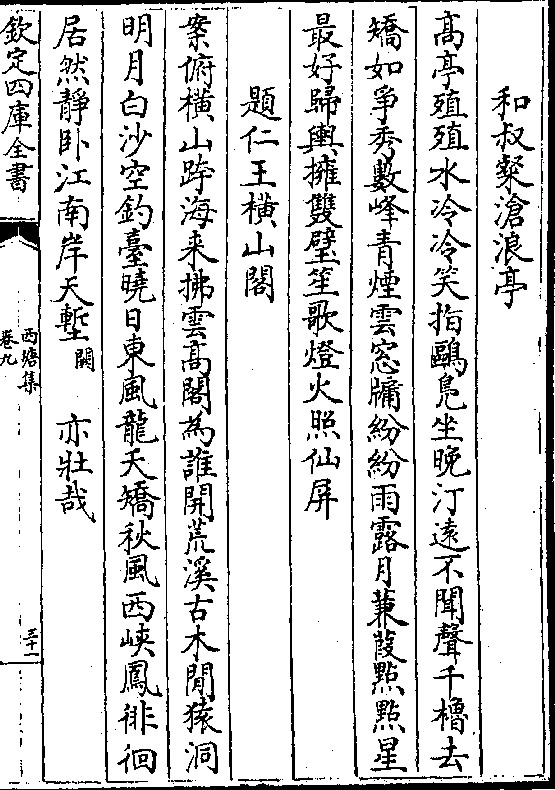 和叔粲滄浪亭
髙亭殖殖水冷冷笑指鷗鳬坐晚汀逺不聞聲千櫓去
矯如爭秀數峰青煙雲窓牖紛紛雨露月蒹葭點點星
最好歸輿擁雙璧笙歌燈火照仙屏
題仁王横山閣
案俯横山跨海来拂雲髙閣為誰開荒溪古木閒猿洞
明月白沙空釣臺曉日東風龍夭矯秋風西峽鳳徘徊
居然靜卧江南岸天塹闕 亦壯哉
欽定四庫全書
西塘集
卷九
三十一